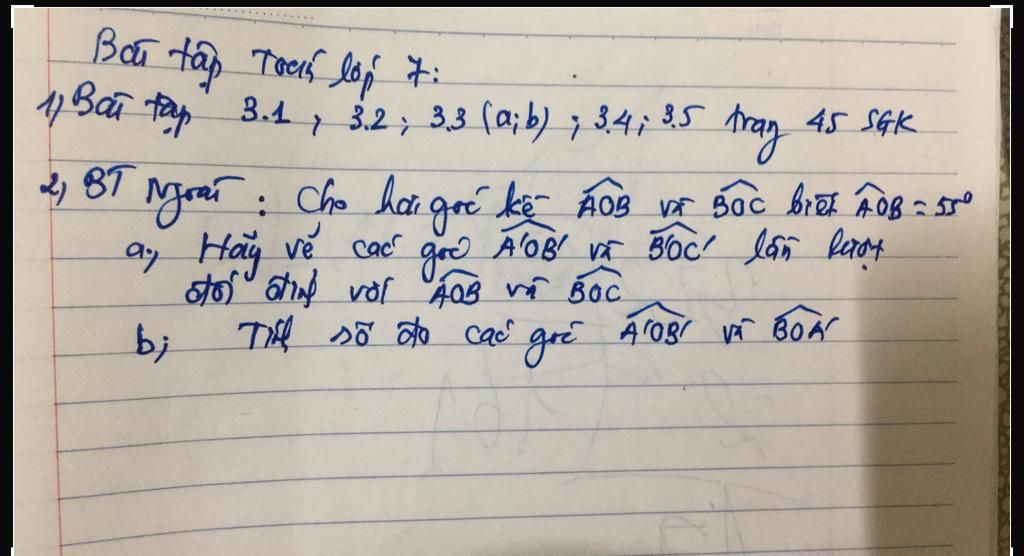 Bài tập Toán lớp 7:
1, Bài tập 3.1 , 3.2 ; 3.3 (a;b) ; 3.4 ; 3.5 trang 45 SGK
2, BT Ngoài : Cho hai góc kề AOB và BOC biết AOB = 55°
a, Hãy vẽ các góc A'OB' và B'OC' lần lượt
đối đỉnh với AOB và BOC
b; Tính số đo các góc A'OB' và BOA'